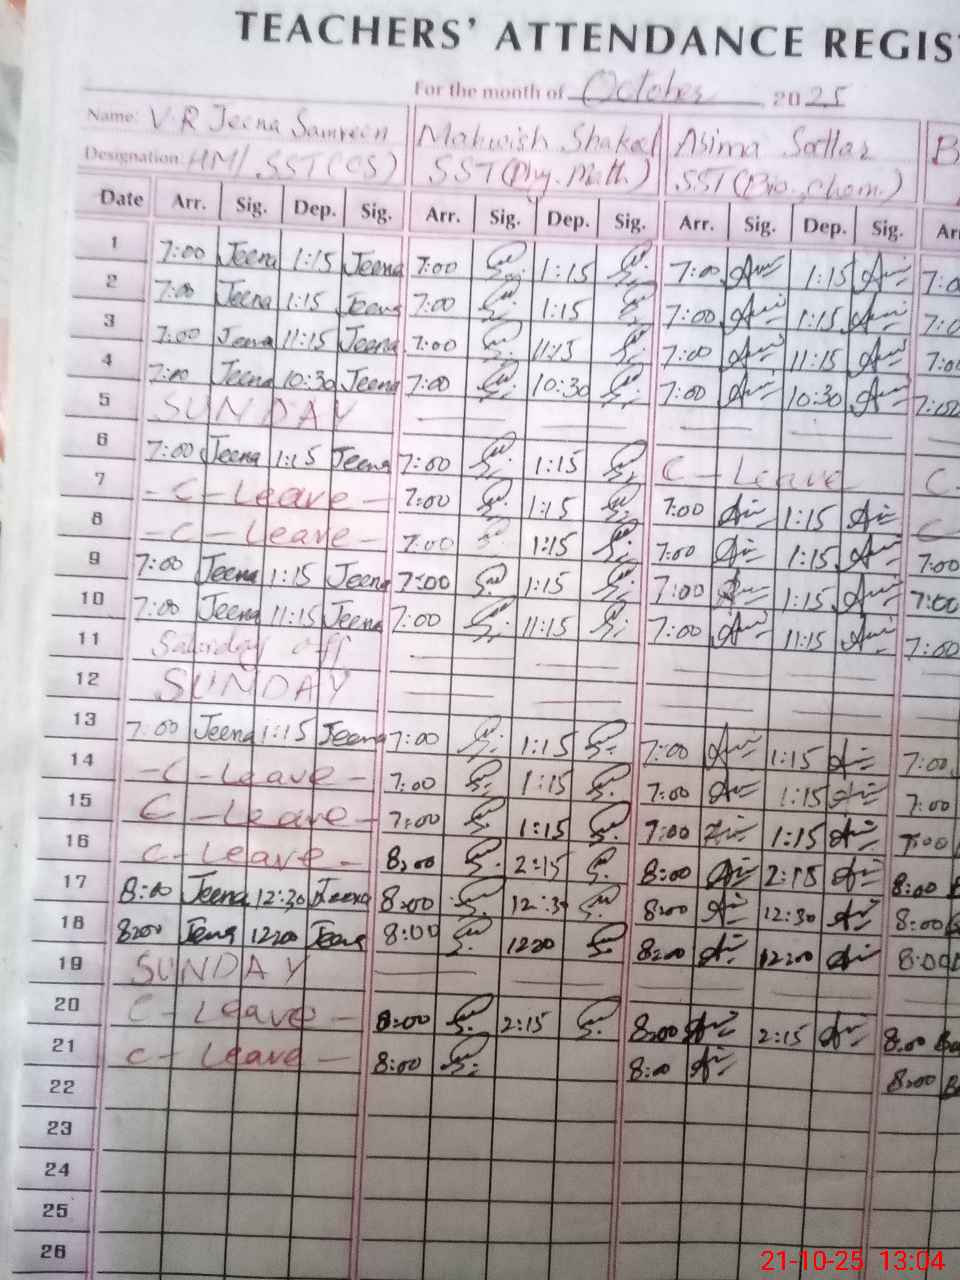 TEACHERS' ATTENDANCE REGIS
For the month of October 2025
Name: V.R Jeena Samreen Mahwish Shakeel Asima Sattar B
Designation: HM/SST(CS) SST(Phy.Math) SST(Bio,chem.)
Date Arr. Sig. Dep. Sig. Arr. Sig. Dep. Sig. Arr. Sig. Dep. Sig. Ar
1 7:00 Jeena 1:15 Jeena 7:00 1:15 7:00 1:15 7:0
2 7:00 Jeena 1:15 Jeena 7:00 1:15 7:00 1:15 7:0
3 7:00 Jeena 11:15 Jeena 7:00 11:15 7:00 11:15 7:00
4 7:00 Jeena 10:30 Jeena 7:00 10:30 7:00 10:30 7:00
5 SUNDAY
6 7:00 Jeena 1:15 Jeena 7:00 1:15 C - Leave C-
7 - C - Leave - 7:00 1:15 7:00 1:15 C
8 - C - Leave - 7:00 1:15 7:00 1:15 7:00
9 7:00 Jeena 1:15 Jeena 7:00 1:15 7:00 1:15 7:00
10 7:00 Jeena 11:15 Jeena 7:00 11:15 7:00 11:15 7:00
11 Saturday off
12 SUNDAY
13 7:00 Jeena 1:15 Jeena 7:00 1:15 7:00 1:15 7:00
14 - C - Leave - 7:00 1:15 7:00 1:15 7:00
15 C - Leave - 7:00 1:15 7:00 1:15 7:00
16 C - Leave - 8:00 2:15 8:00 2:15 8:00 B
17 8:00 Jeena 12:30 Jeena 8:00 12:30 8:00 12:30 8:00
18 8:00 Jeena 12:00 Jeena 8:00 12:00 8:00 12:00 8:00
19 SUNDAY
20 C - Leave - 8:00 2:15 8:00 2:15 8:00
21 C - Leave - 8:00 8:00 8:00
22
23
24
25
26
21-10-25 13:04